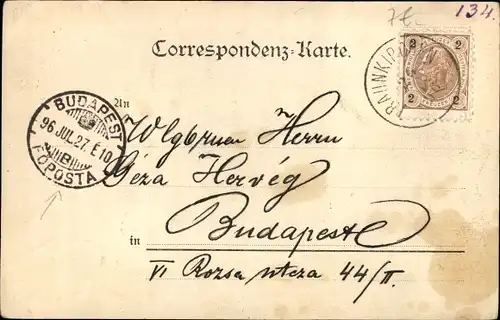 7L 134.
2 2
Correspondenz-Karte.
TRAUNKIRCHEN
2 2
BUDAPEST
96 JUL. 27. É 10
B
FŐPOSTA
An
Wlgbrnen Herrn
Géza Hervég
in Budapest
VI Rozsa utcza 44/II.